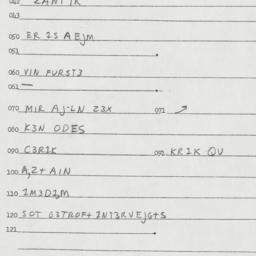 043
050 ER 2S A EJM
051
060 VIN FURST3
061 —
070 MIR AJ-LN 23X 071
080 K3N ODES
090 C3R1K 091 KR1K QU
100 A,2+ A1N
110 1M3D2,M
120 SOT G3TROF+ 1NT3RVEJG+S
121